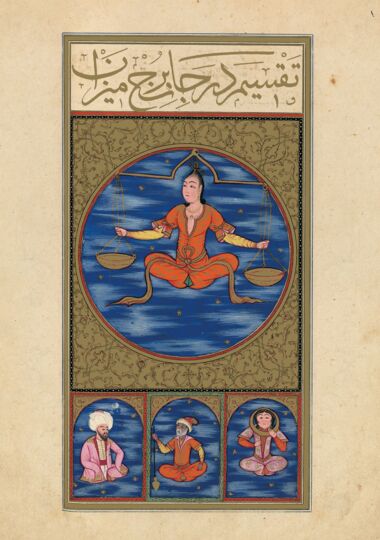 تقسیم درجات برج میزان